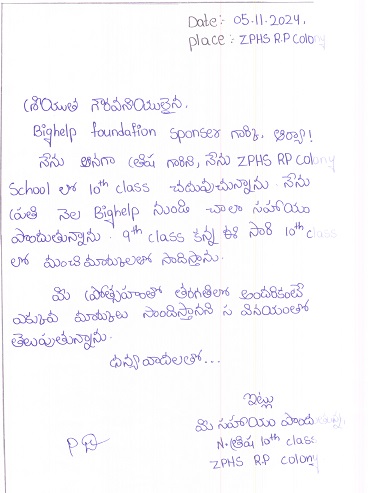 Date:- 05.11.2024.
place:- ZPHS R.P Colony
శ్రీయుత గౌరవనీయులైన,
Bighelp foundation Sponser గారికి, ఆర్యా!
నేను అనగా త్రిష గారిని, నేను ZPHS RP Colony
School లో 10th class చదువుచున్నాను. నేను
ప్రతి నెల Bighelp నుండి చాలా సహాయం
పొందుతున్నాను. 9th class కన్న ఈ సారి 10th class
లో మంచి మార్కులతో సాదిస్తాను.
మీ ప్రోత్సహంతో తరగతిలో అందరికంటే
ఎక్కువ మార్కులు సాందిస్తానని స వినయంతో
తెలుపుతున్నాను.
ధన్యవాదలతో...
ఇట్లు
మీ సహాయం పొందుతున్న,
N. త్రిష 10th class
ZPHS R.P Colony